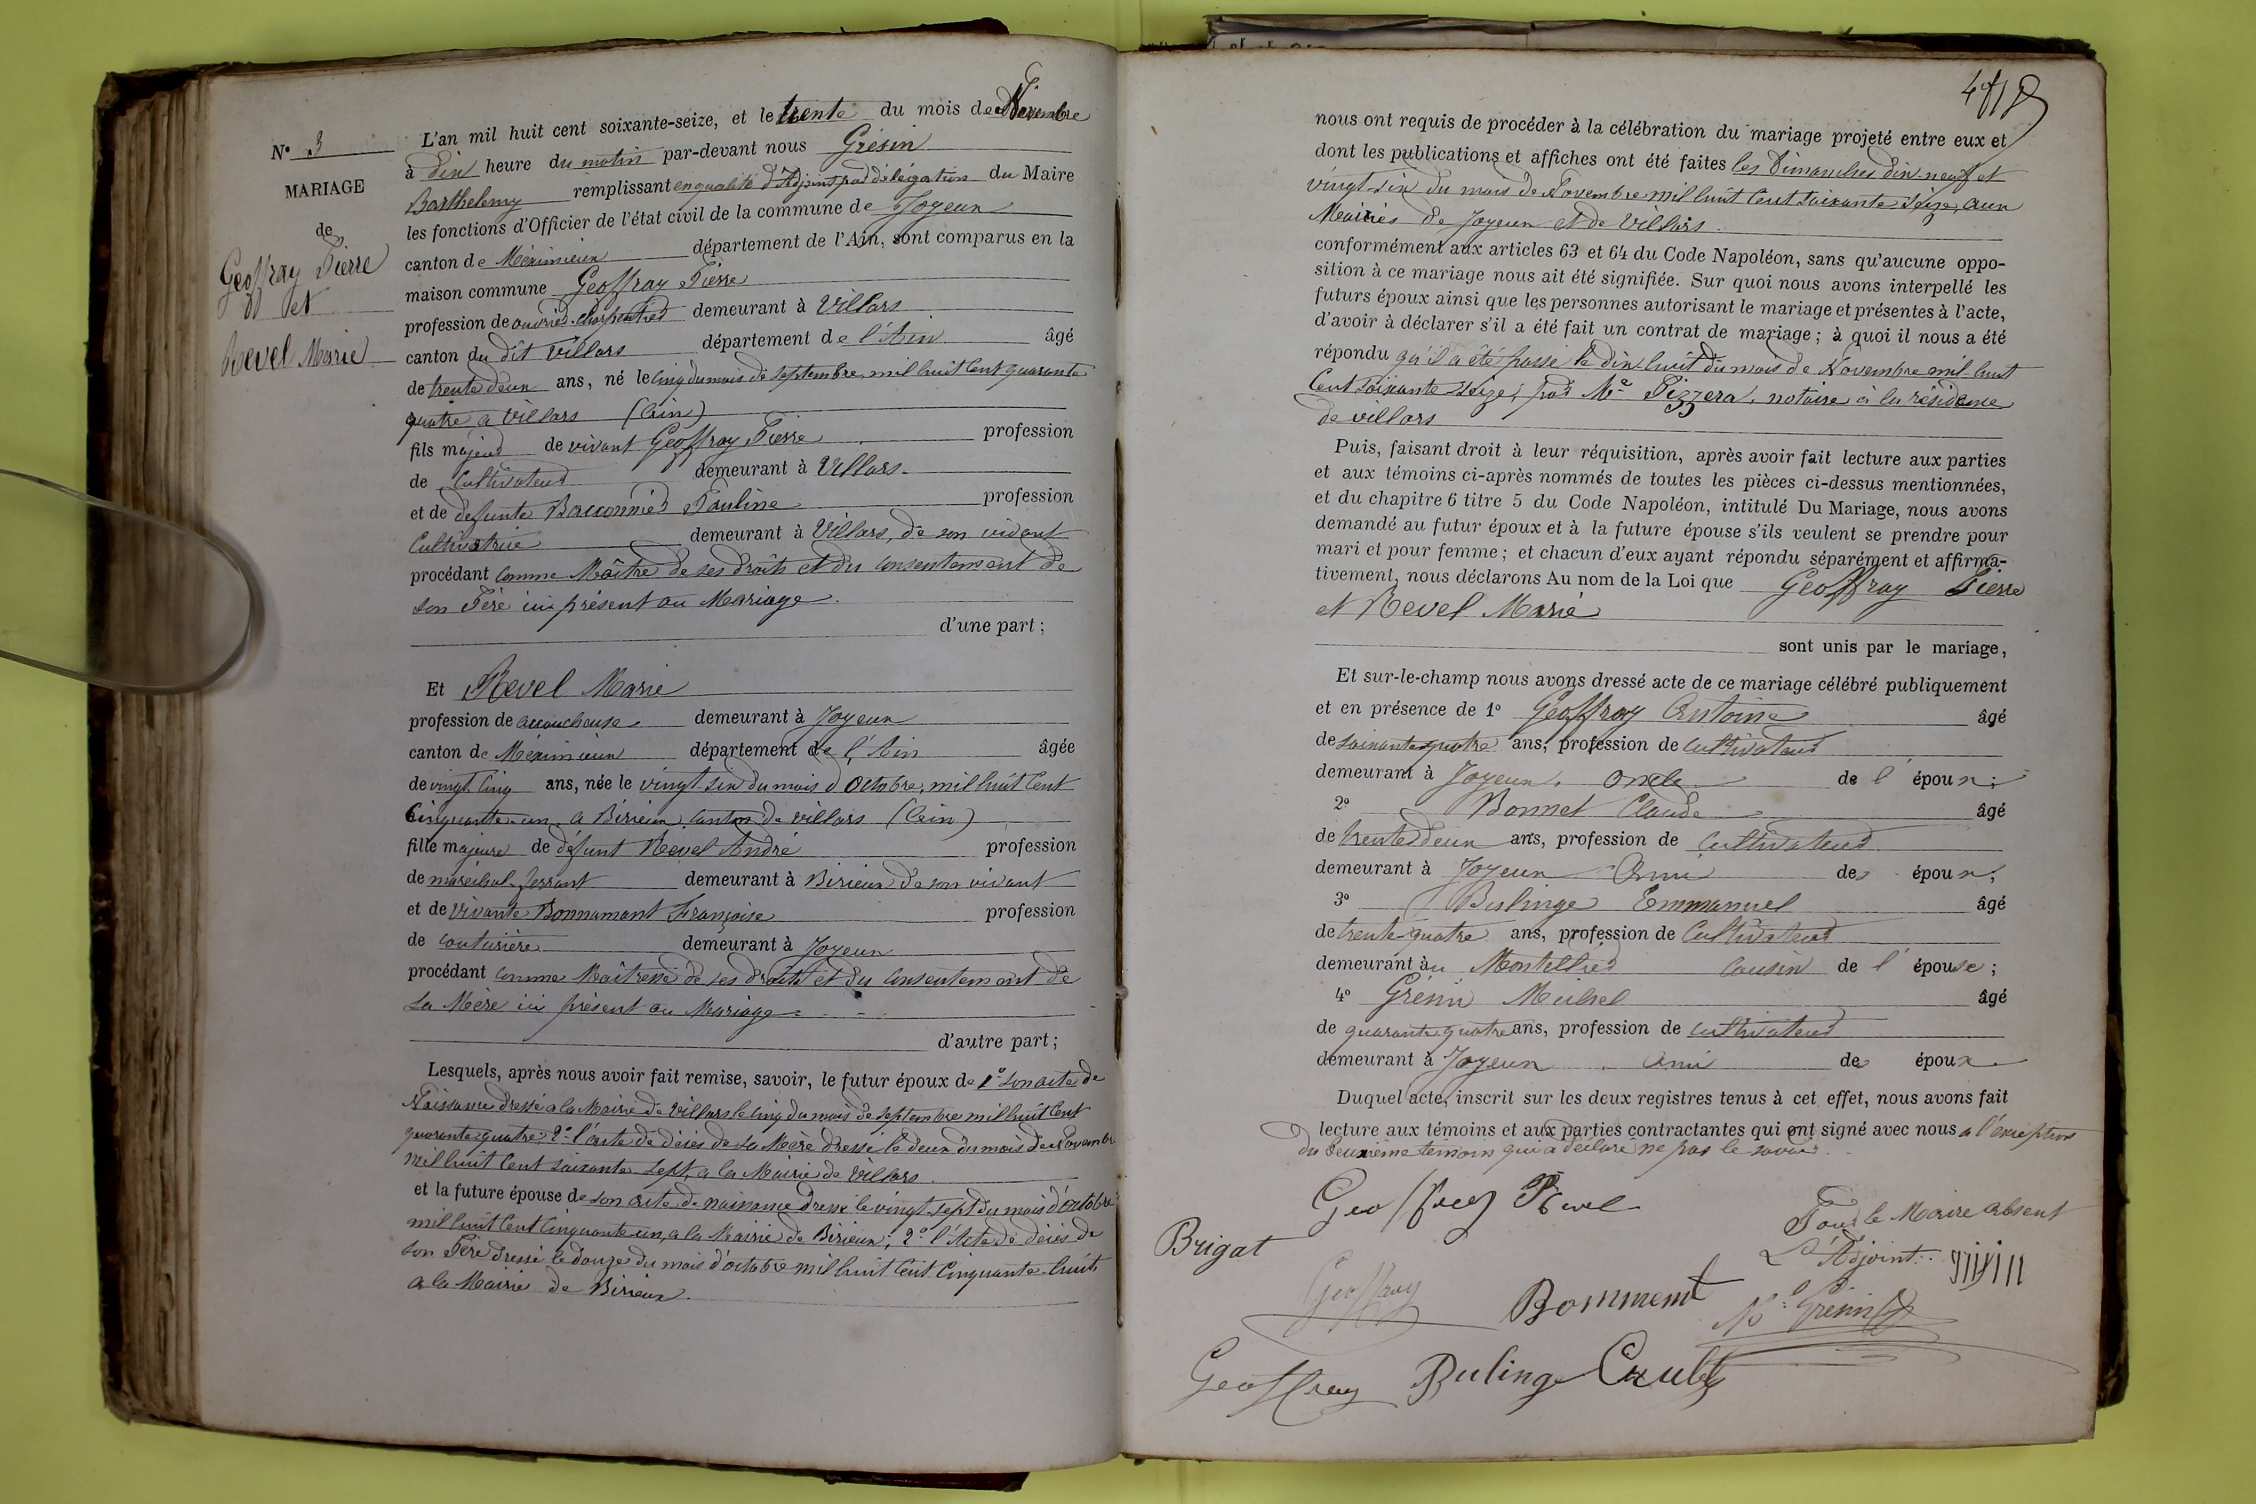 L'an mil huit cent soixante-seize, et le trente du mois de Novembre
N° 3
à dix heure du matin par-devant nous Grésin
MARIAGE
Barthelemy remplissant en qualité d'Adjoint par délégation du Maire
les fonctions d'Officier de l'état civil de la commune de Joyeux
de
Geoffray Pierre
et
Revel Marie
canton de Méximieux département de l'Ain, sont comparus en la
maison commune Geoffray Pierre
profession de ouvrier charpentier demeurant à Villars
canton du dit Villars département de l'Ain âgé
de trente deux ans, né le cinq du mois de septembre mil huit cent quarante
quatre a Villars (Ain)
fils majeur de vivant Geoffray Pierre profession
de Cultivateur demeurant à Villars
et de defunte Bacconnier Pauline profession
Cultivatrice demeurant à Villars, de son vivant
procédant comme Maître de ses droits et du consentement de
son Père ici présent au Mariage.
d'une part ;
Et Revel Marie
profession de accoucheuse demeurant à Joyeux
canton de Méximieux département de l'Ain âgée
de vingt cinq ans, née le vingt six du mois d'Octobre, mil huit cent
Cinquante-un a Birieux canton de villars (Ain)
fille majeure de défunt Revel André profession
de maréchal ferrant demeurant à Birieux de son vivant
et de vivante Bonnamant Françoise profession
de couturière demeurant à Joyeux
procédant comme Maîtresse de ses droits et du consentement de
sa Mère ici présent au Mariage
d'autre part ;
Lesquels, après nous avoir fait remise, savoir, le futur époux de 1° son acte de
Naissance dressé a la Mairie de Villars le cinq du mois de septembre mil huit cent
quarante quatre 2° l'acte de décès de sa Mère dressé le deux du mois de Novembre
mil huit cent soixante sept, a la Mairie de Villars
et la future épouse de son acte de naissance dressé le vingt sept du mois d'octobre
mil huit cent cinquante un, a la Mairie de Birieux ; 2° l'Acte de décès de
son Père dressé le douze du mois d'octobre mil huit cent cinquante huit
a la Mairie de Birieux.
nous ont requis de procéder à la célébration du mariage projeté entre eux et
dont les publications et affiches ont été faites les Dimanches dix-neuf et
vingt-six du mois de Novembre mil huit cent soixante seize, aux
Mairies de Joyeux et de Villars.
conformément aux articles 63 et 64 du Code Napoléon, sans qu'aucune oppo-
sition à ce mariage nous ait été signifiée. Sur quoi nous avons interpellé les
futurs époux ainsi que les personnes autorisant le mariage et présentes à l'acte,
d'avoir à déclarer s'il a été fait un contrat de mariage ; à quoi il nous a été
répondu qu'il a été passé le dix huit du mois de Novembre mil huit
cent soixante seize, par Me Pizzera, notaire à la résidence
de villars
Puis, faisant droit à leur réquisition, après avoir fait lecture aux parties
et aux témoins ci-après nommés de toutes les pièces ci-dessus mentionnées,
et du chapitre 6 titre 5 du Code Napoléon, intitulé Du Mariage, nous avons
demandé au futur époux et à la future épouse s'ils veulent se prendre pour
mari et pour femme ; et chacun d'eux ayant répondu séparément et affirma-
tivement, nous déclarons Au nom de la Loi que Geoffray Pierre
et Revel Marie
sont unis par le mariage,
Et sur-le-champ nous avons dressé acte de ce mariage célébré publiquement
et en présence de 1° Geoffray Antoine âgé
de soixante quatre ans, profession de cultivateur
demeurant à Joyeux. oncle de l'époux ;
2° Bonnet Claude âgé
de trente deux ans, profession de cultivateur
demeurant à Joyeux Ami des époux ;
3° Bulinge Emmanuel âgé
de trente quatre ans, profession de Cultivateur
demeurant au Montellier cousin de l'épouse ;
4° Grésin Michel âgé
de quarante quatre ans, profession de cultivateur
demeurant à Joyeux Ami des époux
Duquel acte, inscrit sur les deux registres tenus à cet effet, nous avons fait
lecture aux témoins et aux parties contractantes qui ont signé avec nous a l'exception
du deuxième témoin qui a déclaré ne pas le savoir.
Geoffray Revel
Pour le Maire absent
L'Adjoint
Brigat
Geoffray
Bomment
Grésin
Geoffray Buling